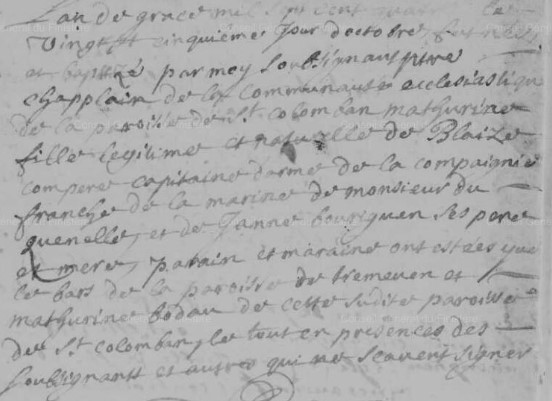 L'an de grace mil sept cent quatre le
Vingt et cinquiéme Jour doctobre fut née
et baptizé par moy soubsignant ptre
chapplain de la communauté ecclesiastique
de la paroisse de St colomban mathurine
fille legitime et naturelle de Blaize
compere capitaine darme de la compaignie
franche de la marine de monsieur du
quenelle, et de Janne bouriquen ses pere
et mere, parain et maraine ont estées yve
le bars de la paroisse de tremeven et
mathurine bodau de cette sudite paroisse
de St colomban, le tout en presences des
soubsignants et autres qui ne scavent signer